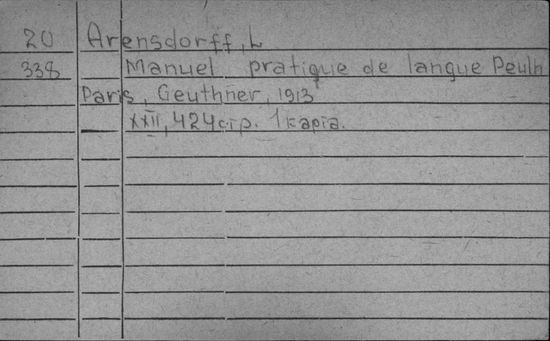 20 Arensdorff, L
338 Manuel pratique de langue Peulh
Paris, Geuthner, 1913
XXII, 424 стр. 1 карта.